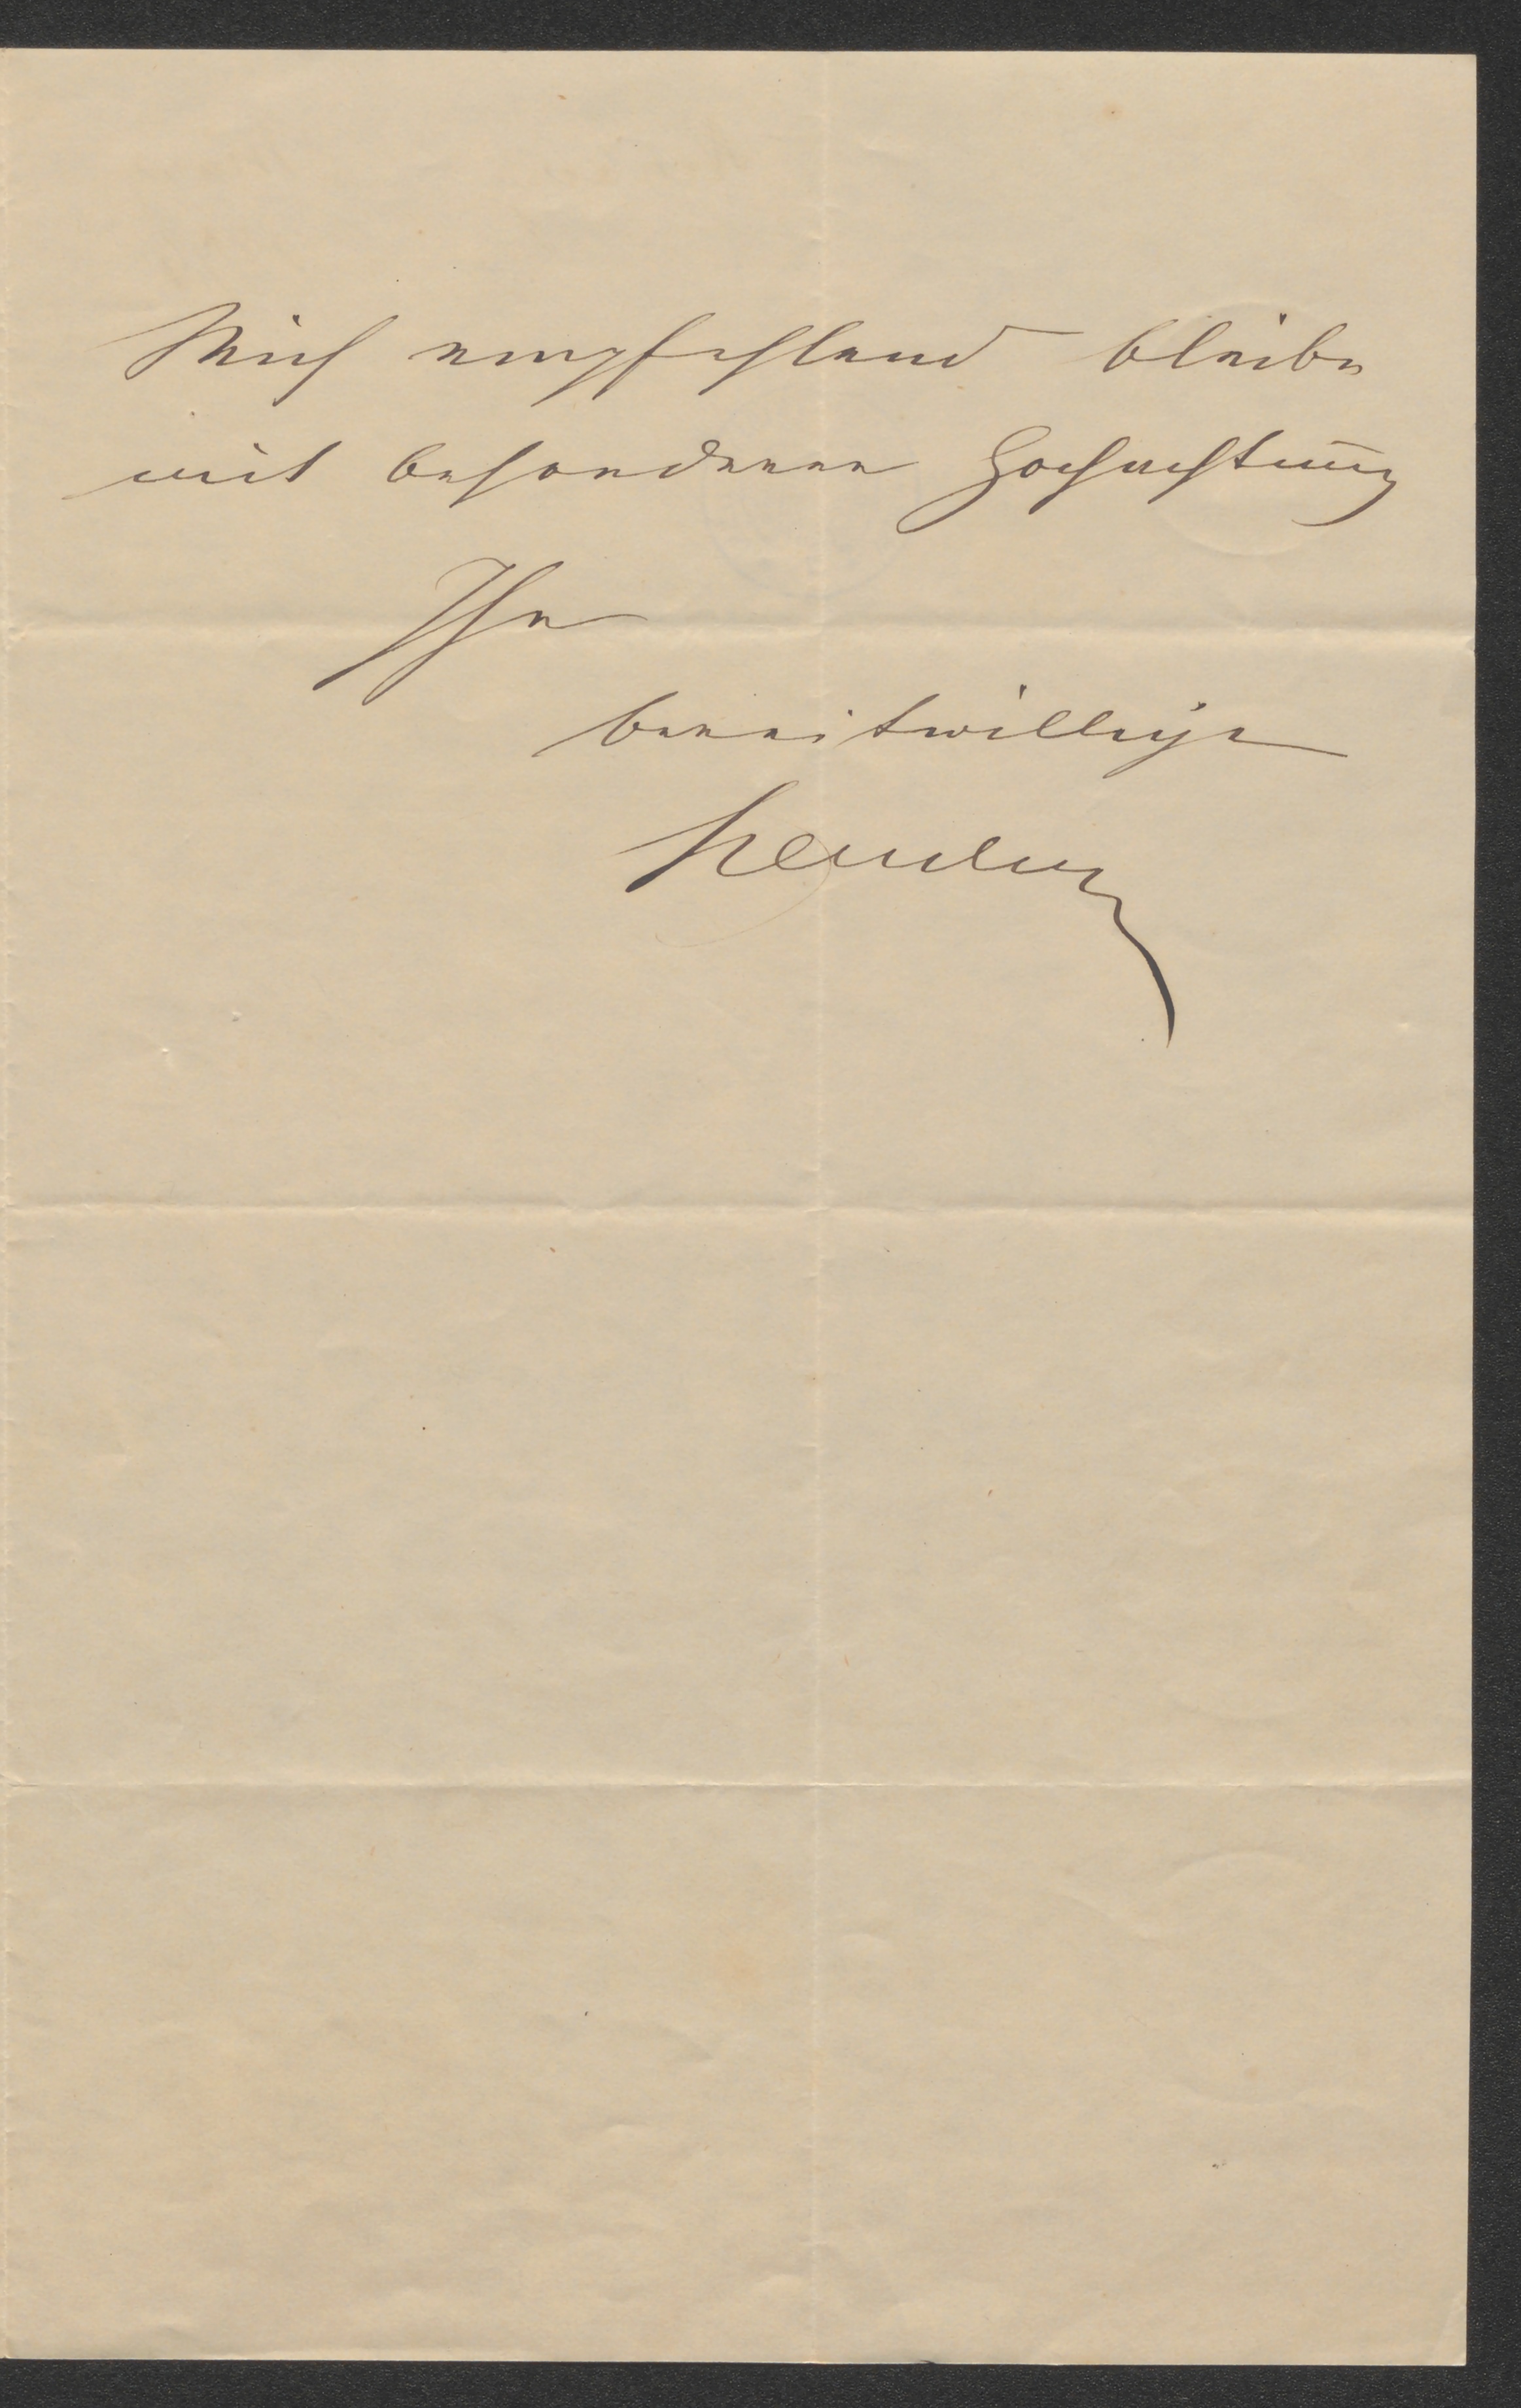 Mich empfehlend bleibe
mit besonderer Hochachtung
Ihr
bereitwillige